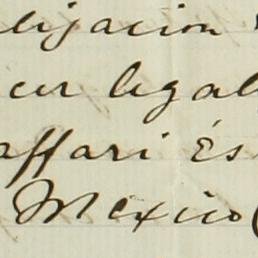 lijacion
cer legal
affari És
Mexico (